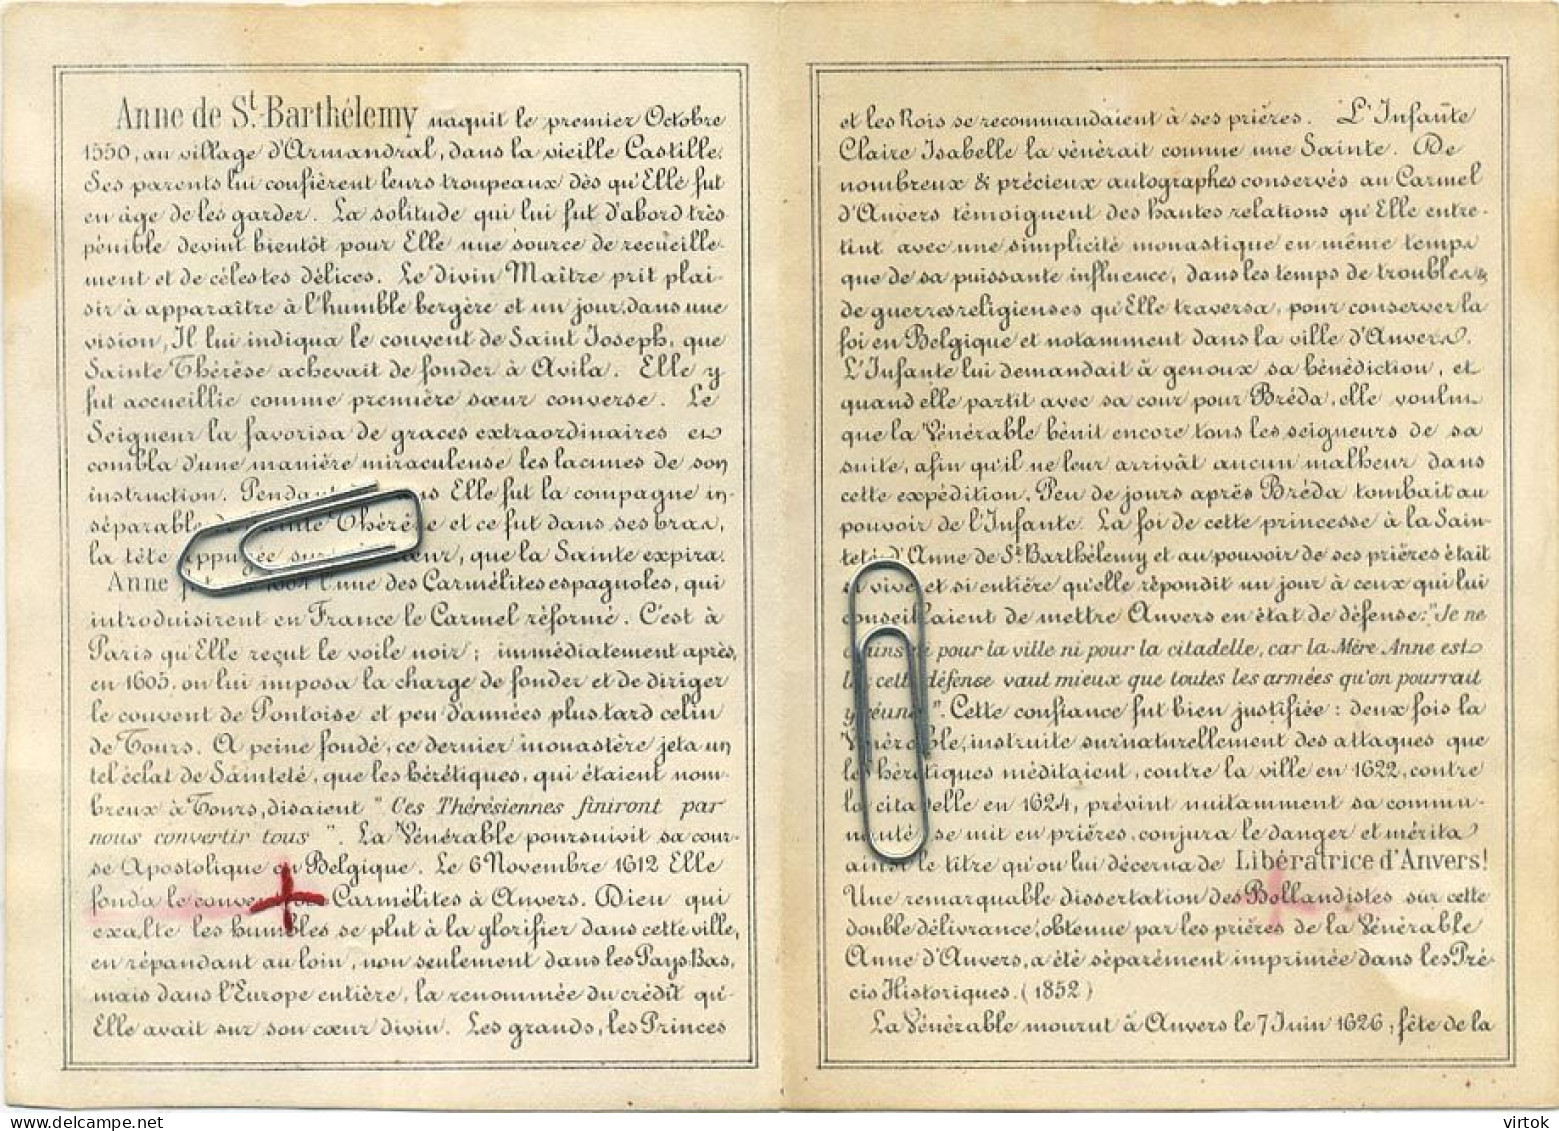 Anne de St. Barthélemy naquit le premier Octobre
1550, au village d'Armandral, dans la vieille Castille.
Ses parents lui confièrent leurs troupeaux dès qu'Elle fut
en âge de les garder. La solitude qui lui fut d'abord très
pénible devint bientôt pour Elle une source de recueille-
ment et de célestes délices. Le divin Maître prit plai-
sir à apparaître à l'humble bergère et un jour, dans une
vision, Il lui indiqua le couvent de Saint Joseph, que
Sainte Thérèse achevait de fonder à Avila. Elle y
fut accueillie comme première sœur converse. Le
Seigneur la favorisa de graces extraordinaires et
combla d'une manière miraculeuse les lacunes de son
instruction. Elle fut la compagne in-
séparable Sainte Thérèse et ce fut dans ses bras,
la tête appuyée sur cœur, que la Sainte expira.
Anne 1604 l'une des Carmélites espagnoles, qui
introduisirent en France le Carmel réformé. C'est à
Paris qu'Elle reçut le voile noir; immédiatement après,
en 1605, on lui imposa la charge de fonder et de diriger
le couvent de Pontoise et peu d'années plus tard celui
de Tours. A peine fondé, ce dernier monastère jeta un
tel éclat de Sainteté, que les hérétiques, qui étaient nom-
breux à Tours, disaient "Ces Thérésiennes finiront par
nous convertir tous". La Vénérable poursuivit sa cour-
se Apostolique en Belgique. Le 6 Novembre 1612 Elle
fonda le couvent des Carmélites à Anvers. Dieu qui
exalte les humbles se plut à la glorifier dans cette ville,
en répandant au loin, non seulement dans les Pays Bas,
mais dans l'Europe entière, la renommée du crédit qu'-
Elle avait sur son cœur divin. Les grands, les Princes
et les Rois se recommandaient à ses prières. L'Infante
Claire Isabelle la vénérait comme une Sainte. De
nombreux & précieux autographes conservés au Carmel
d'Anvers témoignent des hautes relations qu'Elle entre-
tint avec une simplicité monastique en même temps
que de sa puissante influence, dans les temps de troubles &
de guerres religieuses qu'Elle traversa, pour conserver la
foi en Belgique et notamment dans la ville d'Anvers.
L'Infante lui demandait à genoux sa bénédiction, et
quand elle partit avec sa cour pour Bréda, elle voulut
que la Vénérable bénit encore tous les seigneurs de sa
suite, afin qu'il ne leur arrivât aucun malheur dans
cette expédition. Peu de jours après Bréda tombait au
pouvoir de l'Infante. La foi de cette princesse à la Sain-
teté d'Anne de St. Barthélemy et au pouvoir de ses prières était
si vive et si entière qu'elle répondit un jour à ceux qui lui
conseillaient de mettre Anvers en état de défense: "Je ne
crains ni pour la ville ni pour la citadelle, car la Mère Anne est
là cette défense vaut mieux que toutes les armées qu'on pourrait
y réunir". Cette confiance fut bien justifiée: deux fois la
Vénérable, instruite surnaturellement des attaques que
les hérétiques méditaient, contre la ville en 1622, contre
la citadelle en 1624, prévint nuitamment sa commu-
nauté, se mit en prières, conjura le danger et mérita
ainsi le titre qu'on lui décerna de Libératrice d'Anvers!
Une remarquable dissertation des Bollandistes sur cette
double délivrance, obtenue par les prières de la Vénérable
Anne d'Anvers, a été séparément imprimée dans les Pré-
cis Historiques. (1852)
La Vénérable mourut à Anvers le 7 Juin 1626, fête de la
www.delcampe.net
virtok